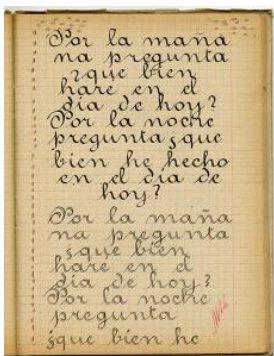 Por la maña
na pregunta
¿que bien
hare en el
dia de hoy?
Por la noche
pregunta ¿que
bien he hecho
en el dia de
hoy?
Por la maña
na pregunta
¿que bien
hare en el
dia de hoy?
Por la noche
pregunta
¿que bien he